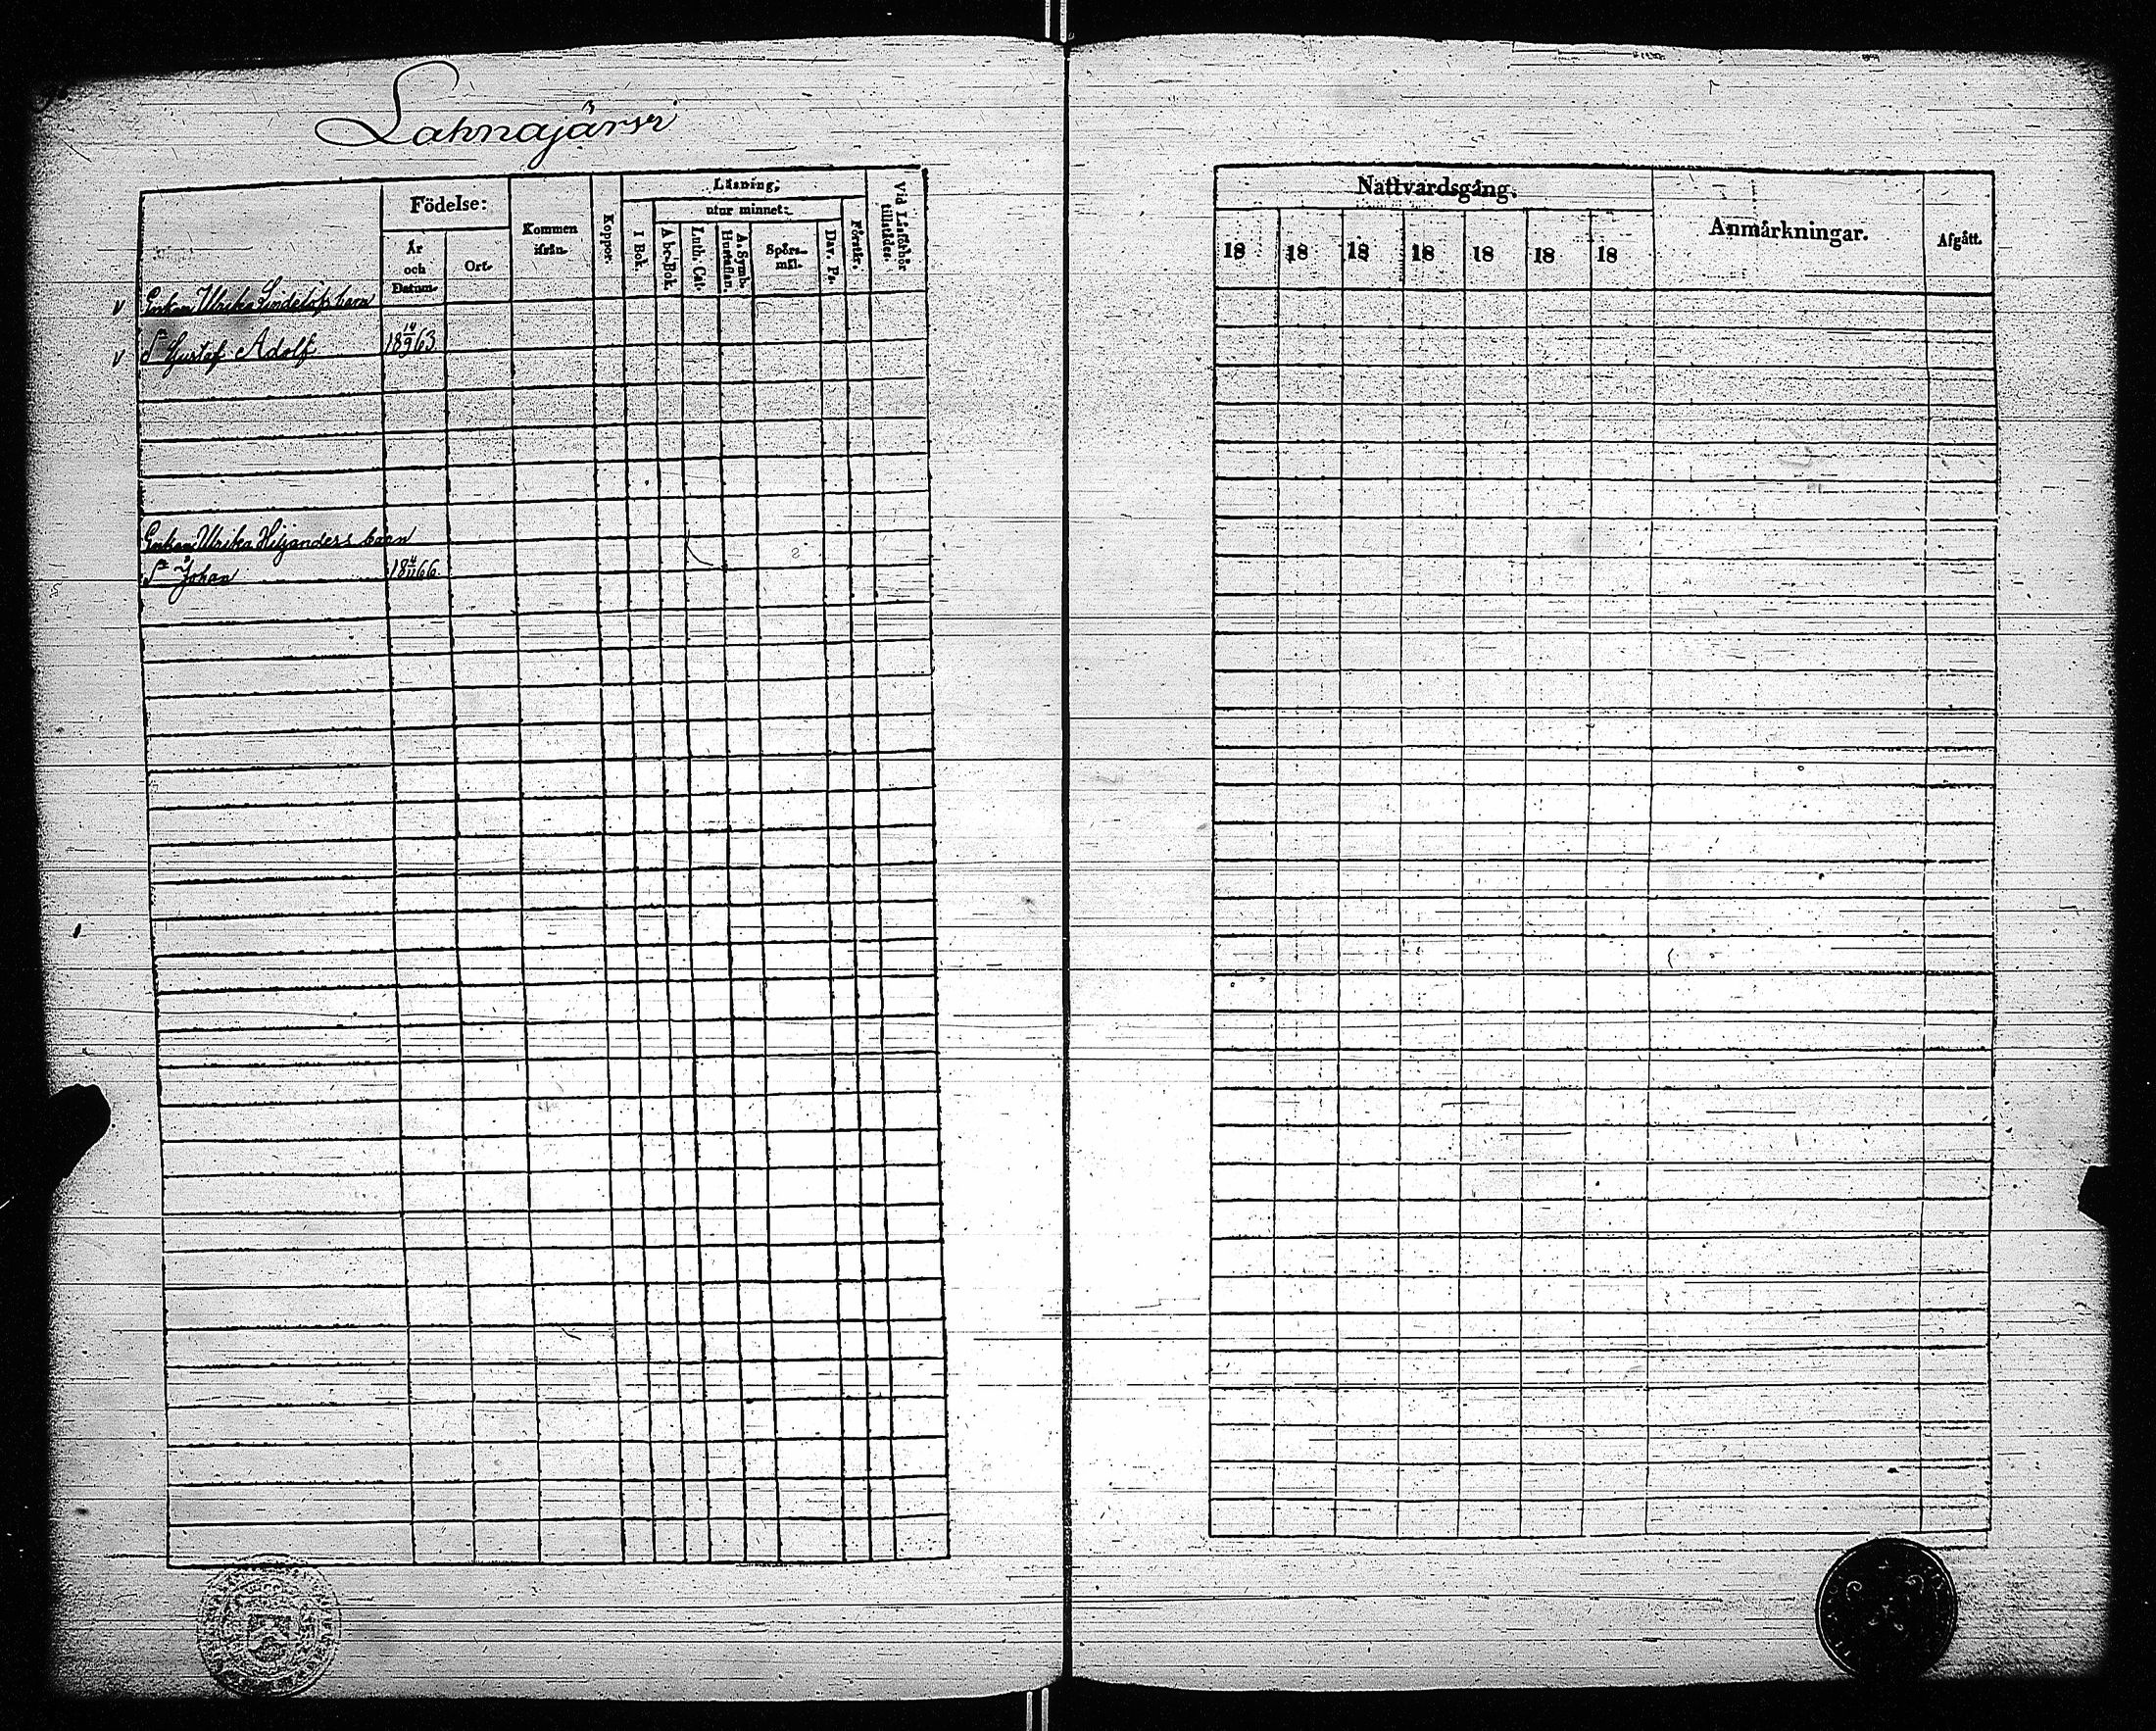 Lahnajärvi
Födelse:
År och Datum.
Ort.
Kommen ifrån.
Koppor.
Läsning,
I Bok.
utur minnet:
A b c-Bok.
Luth. Cat.
A. Symb. Hustaflan
Spörs-mål.
Dav. Ps.
Förstår.
Vid Läsförhör tillstädes.
v Enkan Ulrika Lindelöfs barn
v S Gustaf Adolf 18 14/9 63
Enkan Ulrika barn
Sn Johan 18 4/11 66
Nattvardsgång.
18 18 18 18 18 18 18
Anmärkningar.
Afgått.